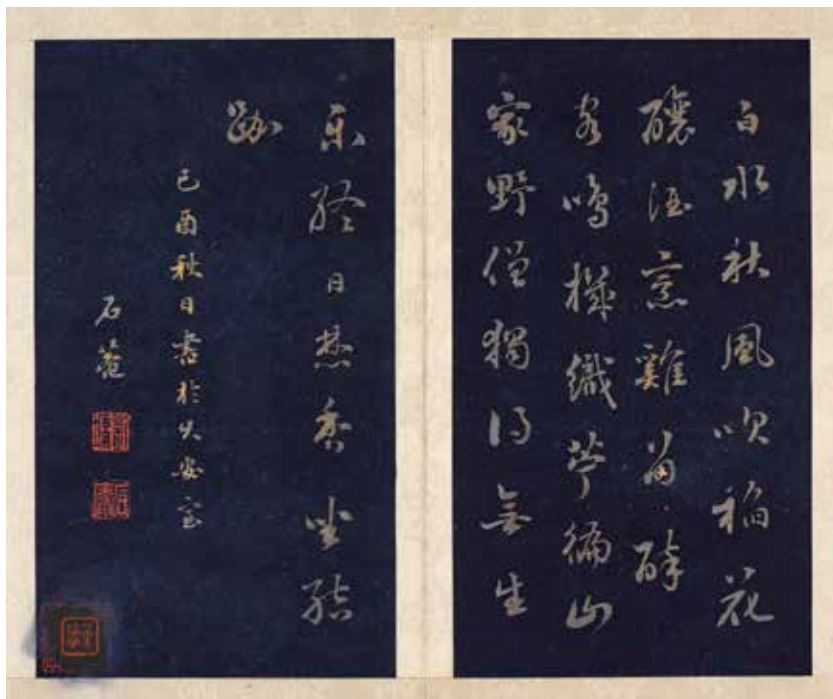 白水秋風吹稻花
釀酒烹雞留醉
客鳴機織苧徧山
家野僧獨得無生
樂終日焚香坐結
跏
己酉秋日書於久安室
石菴